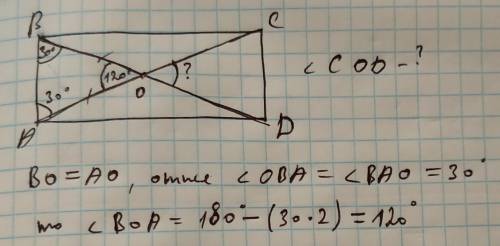 B
C
30°
120°
?
30°
O
A
D
∠COD - ?
BO = AO, отже ∠OBA = ∠BAO = 30°
то ∠BOA = 180° - (30·2) = 120°